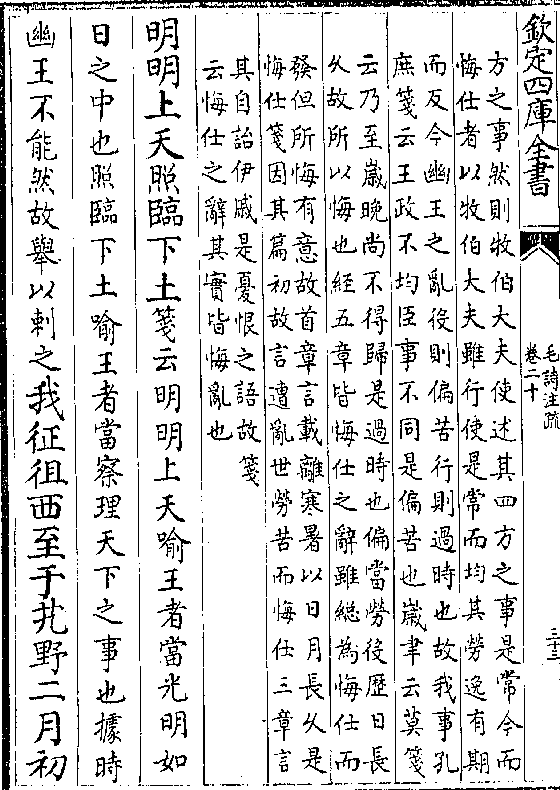 欽定四庫全書
毛詩注疏
卷二十
三十三
方之事然則牧伯大夫使述其四方之事是常今而
悔仕者以牧伯大夫雖行使是常而均其勞逸有期
而反今幽王之亂役則偏苦行則過時也故我事孔
庶箋云王政不均臣事不同是偏苦也歲聿云莫箋
云乃至歲晚尚不得歸是過時也偏當勞役歷日長
乆故所以悔也經五章皆悔仕之辭雖總為悔仕而
發但所悔有意故首章言載離寒暑以日月長乆是
悔仕箋因其篇初故言遭亂世勞苦而悔仕三章言
其自詒伊戚是憂恨之語故箋
云悔仕之辭其實皆悔亂也
明明上天照臨下土箋云明明上天喻王者當光明如
日之中也照臨下土喻王者當察理天下之事也據時
幽王不能然故舉以刺之我征徂西至于艽野二月初